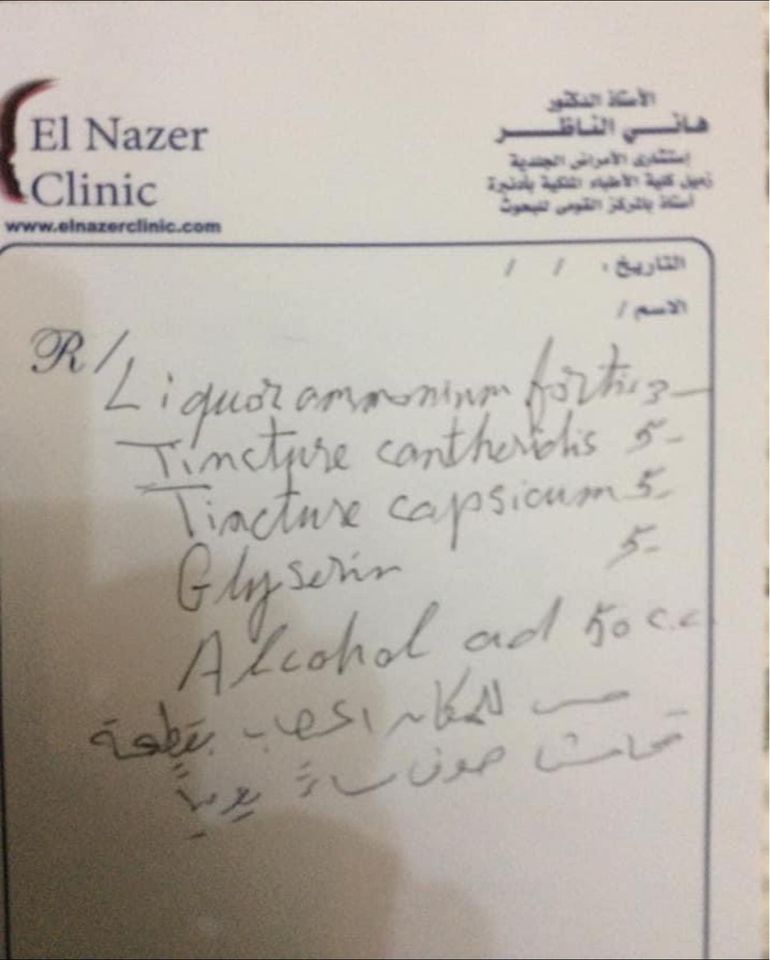 El Nazer
Clinic
www.elnazerclinic.com
الأستاذ الدكتور
هانى الناظر
إستشارى الأمراض الجلدية
زميل كلية الأطباء الملكية بأدنبرة
أستاذ بالمركز القومى للبحوث
التاريخ : / /
الاسم /
R/
Liquor ammonium fortis 3-
Tincture cantheridis 5-
Tincture capsicum 5-
Glyserin 5-
Alcohol ad 50 c.c
مس للمكان المصاب بقطعة
قماش صوف مساءً يومياً